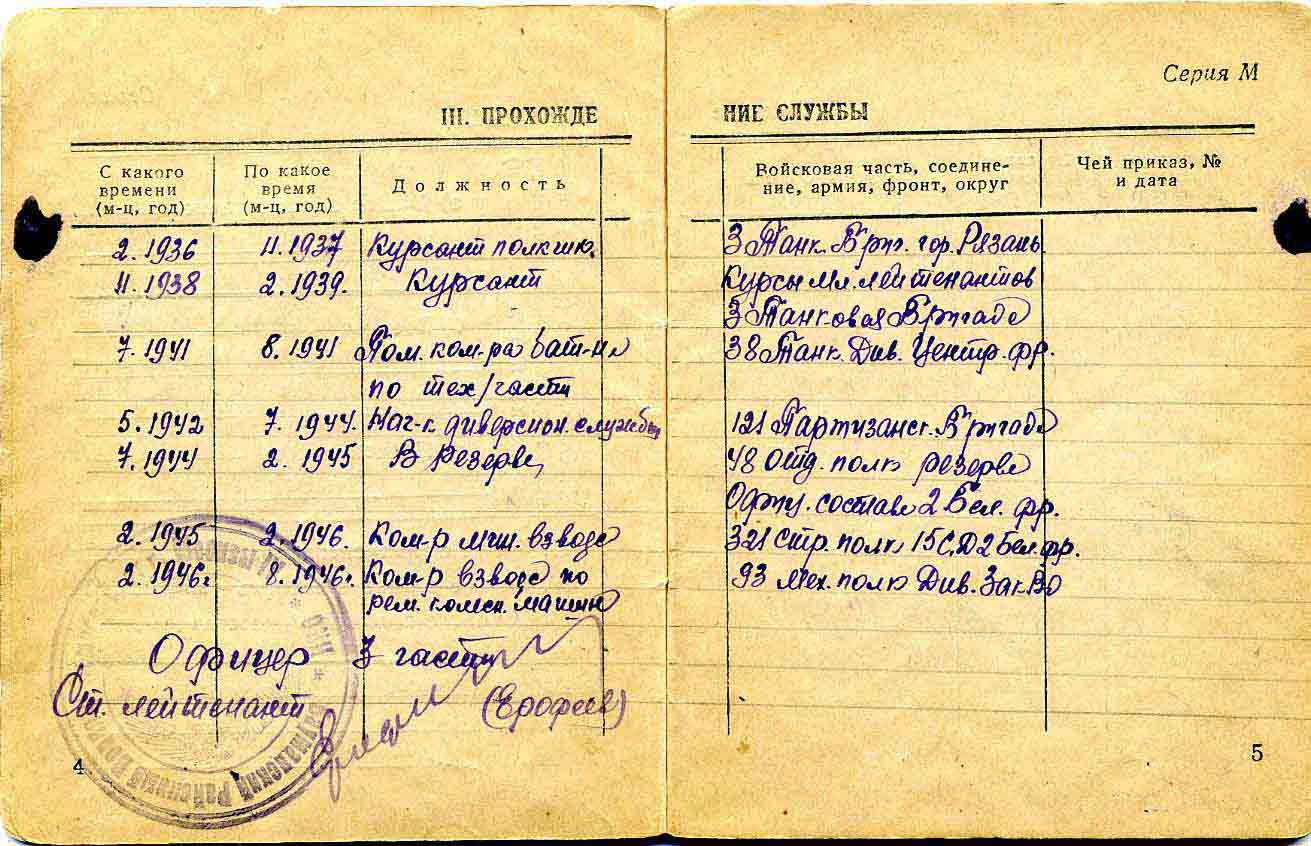 Серия М
III. ПРОХОЖДЕНИЕ СЛУЖБЫ
С какого времени (м-ц, год) По какое время (м-ц, год) Должность Войсковая часть, соединение, армия, фронт, округ Чей приказ, № и дата
2. 1936 11. 1937 Курсант полк шк. 3 Танк. Бриг. гор. Рязань
11. 1938 2. 1939. Курсант Курсы мл. лейтенантов
3 Танковая Бригада
7. 1941 8. 1941 Пом. ком-ра бат-на 38 Танк. Див. Центр. фр.
по тех/части
5. 1942 7. 1944. Нач-к диверсион. службы 121 Партизанск. Бригада
7. 1944 2. 1945 В Резерве 48 отд. полк резерва
Офиц. состава 2 Бел. фр.
2. 1945 2. 1946. Ком-р взвода 321 Стр. полк 15 С.Д 2 Бел. фр.
2. 1946г. 8. 1946г. Ком-р взвода по 93 Мех. полк Див. Зак. ВО
рем. машин
Офицер 3 части
Ст. лейтенант (Ерофеев)
4
5